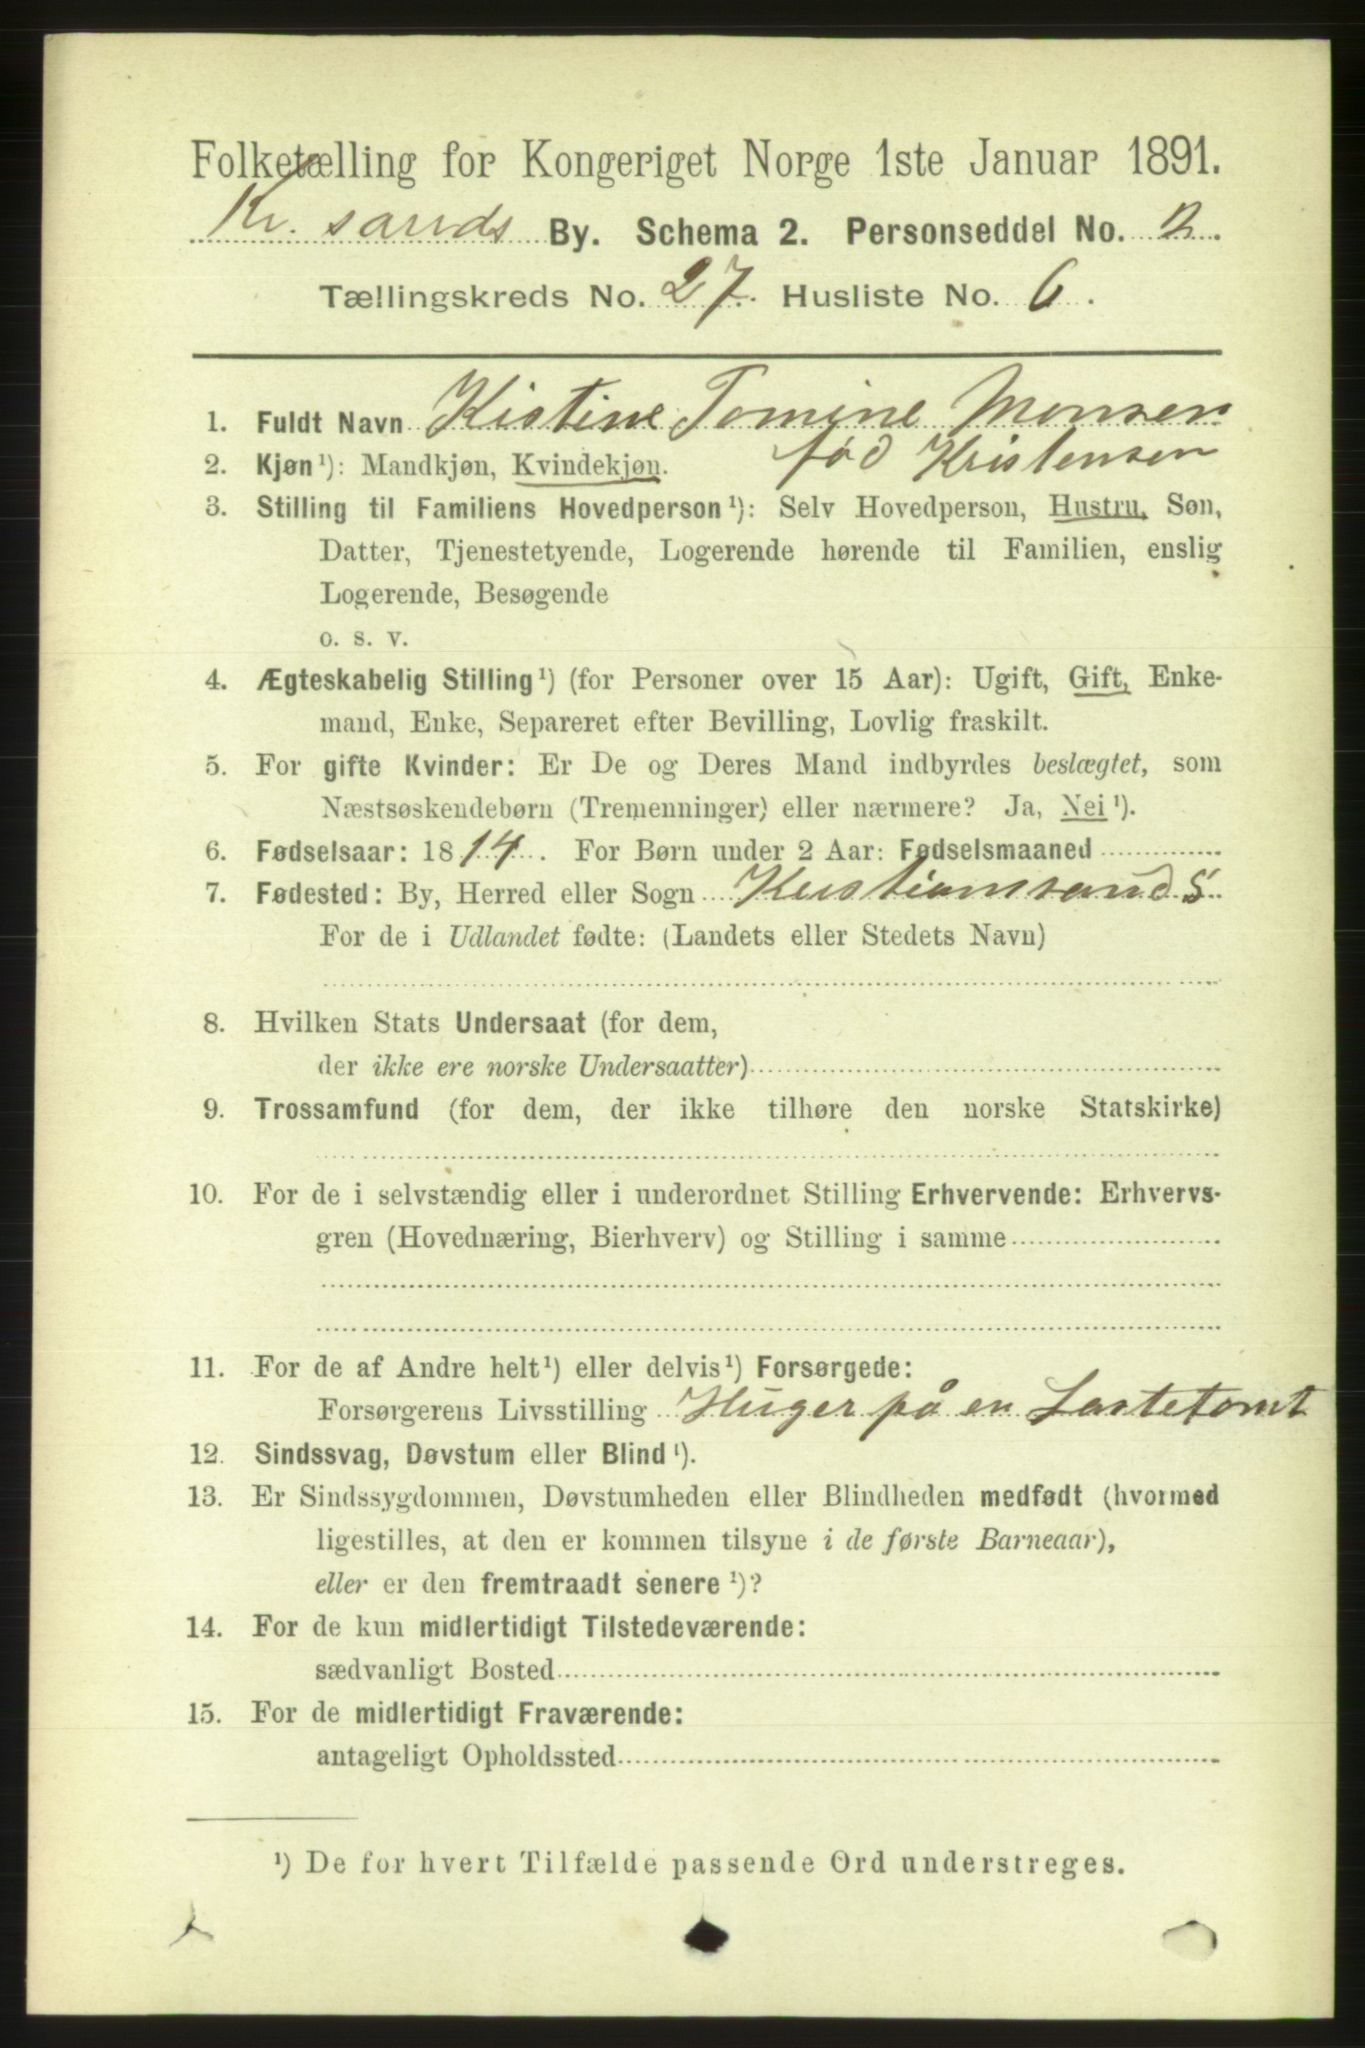 Folketælling for Kongeriget Norge 1ste Januar 1891.
Kr. sands By. Schema 2. Personseddel No. 2.
Tællingskreds No. 27. Husliste No. 6.
1. Fuldt Navn Kistine Tomine Monsen
fød Kristensen
2. Kjøn¹): Mandkjøn, Kvindekjøn.
3. Stilling til Familiens Hovedperson¹): Selv Hovedperson, Hustru, Søn,
Datter, Tjenestetyende, Logerende hørende til Familien, enslig
Logerende, Besøgende
o. s. v.
4. Ægteskabelig Stilling¹) (for Personer over 15 Aar): Ugift, Gift, Enke-
mand, Enke, Separeret efter Bevilling, Lovlig fraskilt.
5. For gifte Kvinder: Er De og Deres Mand indbyrdes beslægtet, som
Næstsøskendebørn (Tremenninger) eller nærmere? Ja, Nei¹).
6. Fødselsaar: 1814. For Børn under 2 Aar: Fødselsmaaned
7. Fødested: By, Herred eller Sogn Kristiansands
For de i Udlandet fødte: (Landets eller Stedets Navn)
8. Hvilken Stats Undersaat (for dem,
der ikke ere norske Undersaatter)
9. Trossamfund (for dem, der ikke tilhøre den norske Statskirke)
10. For de i selvstændig eller i underordnet Stilling Erhvervende: Erhvervs-
gren (Hovednæring, Bierhverv) og Stilling i samme
11. For de af Andre helt¹) eller delvis¹) Forsørgede:
Forsørgerens Livsstilling Huger på en Lastetomt
12. Sindssvag, Døvstum eller Blind¹).
13. Er Sindssygdommen, Døvstumheden eller Blindheden medfødt (hvormed
ligestilles, at den er kommen tilsyne i de første Barneaar),
eller er den fremtraadt senere¹)?
14. For de kun midlertidigt Tilstedeværende:
sædvanligt Bosted
15. For de midlertidigt Fraværende:
antageligt Opholdssted
¹) De for hvert Tilfælde passende Ord understreges.